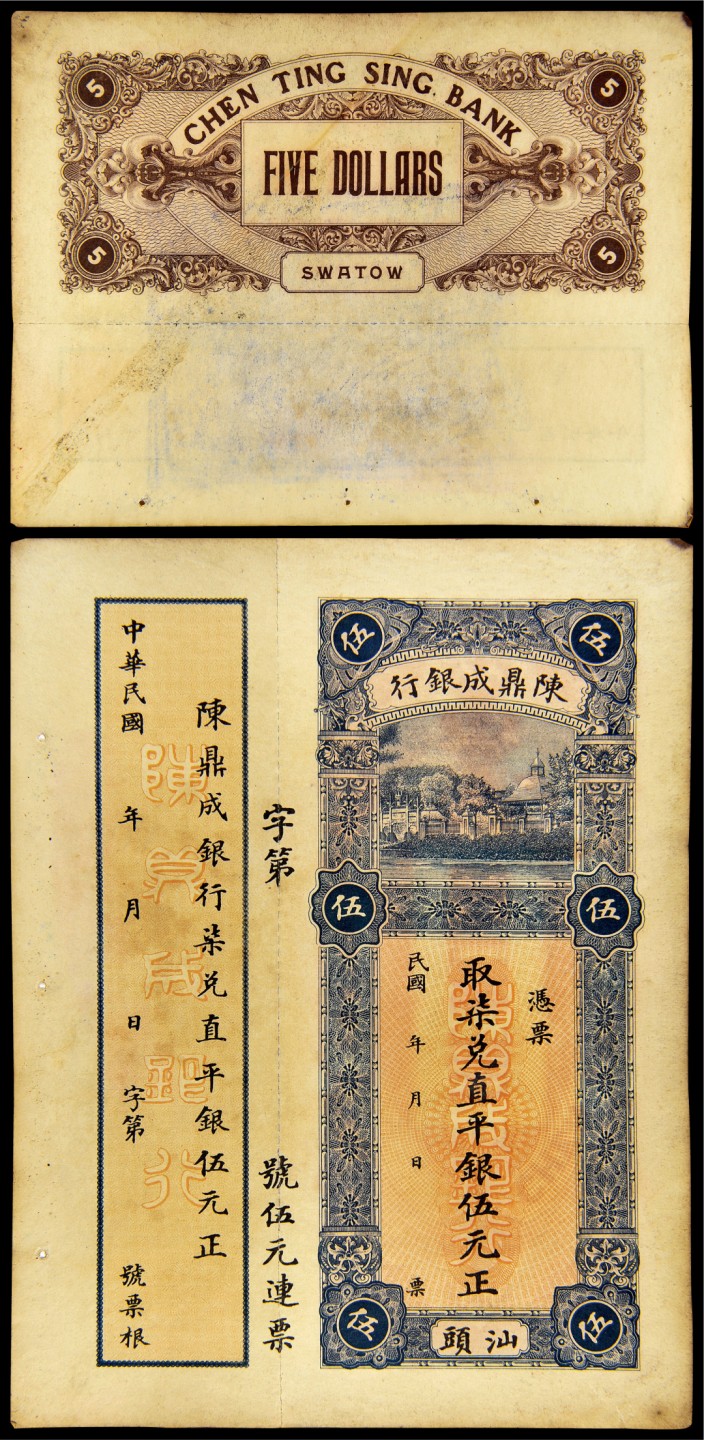 CHEN TING SING. BANK
5
5
FIVE DOLLARS
5
5
SWATOW
伍
伍
陳鼎成銀行
伍
伍
憑票
取柒兌直平銀伍元正
民國 年 月 日 票
伍
伍
汕頭
字第 號伍元連票
陳鼎成銀行柒兌直平銀伍元正
中華民國 年 月 日 字第 號票根